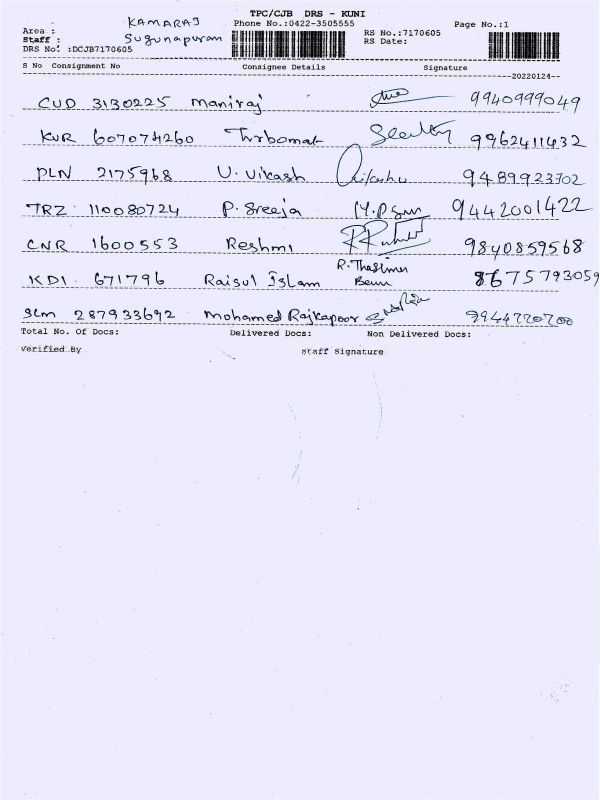 TPC/CJB DRS - KUNI
Area : KAMARAJ Phone No.:0422-3505555 RS No.:7170605 Page No.:1
Staff : Sugunapuram RS Date:
DRS No. :DCJB7170605
S No Consignment No Consignee Details Signature
20220124
CUD 3130225 Maniraj 9940999049
KVR 607074260 9962411432
PLN 2175968 U. Vikash 9489923702
TRZ 110080724 P. Sreeja 9442001422
CNR 1600553 Reshmi 9840859568
KDI 671796 Raisul Islam 8675793059
SLM 287933692 Mohamed Rajkapoor 9944720700
Total No. Of Docs: Delivered Docs: Non Delivered Docs:
Verified By Staff Signature